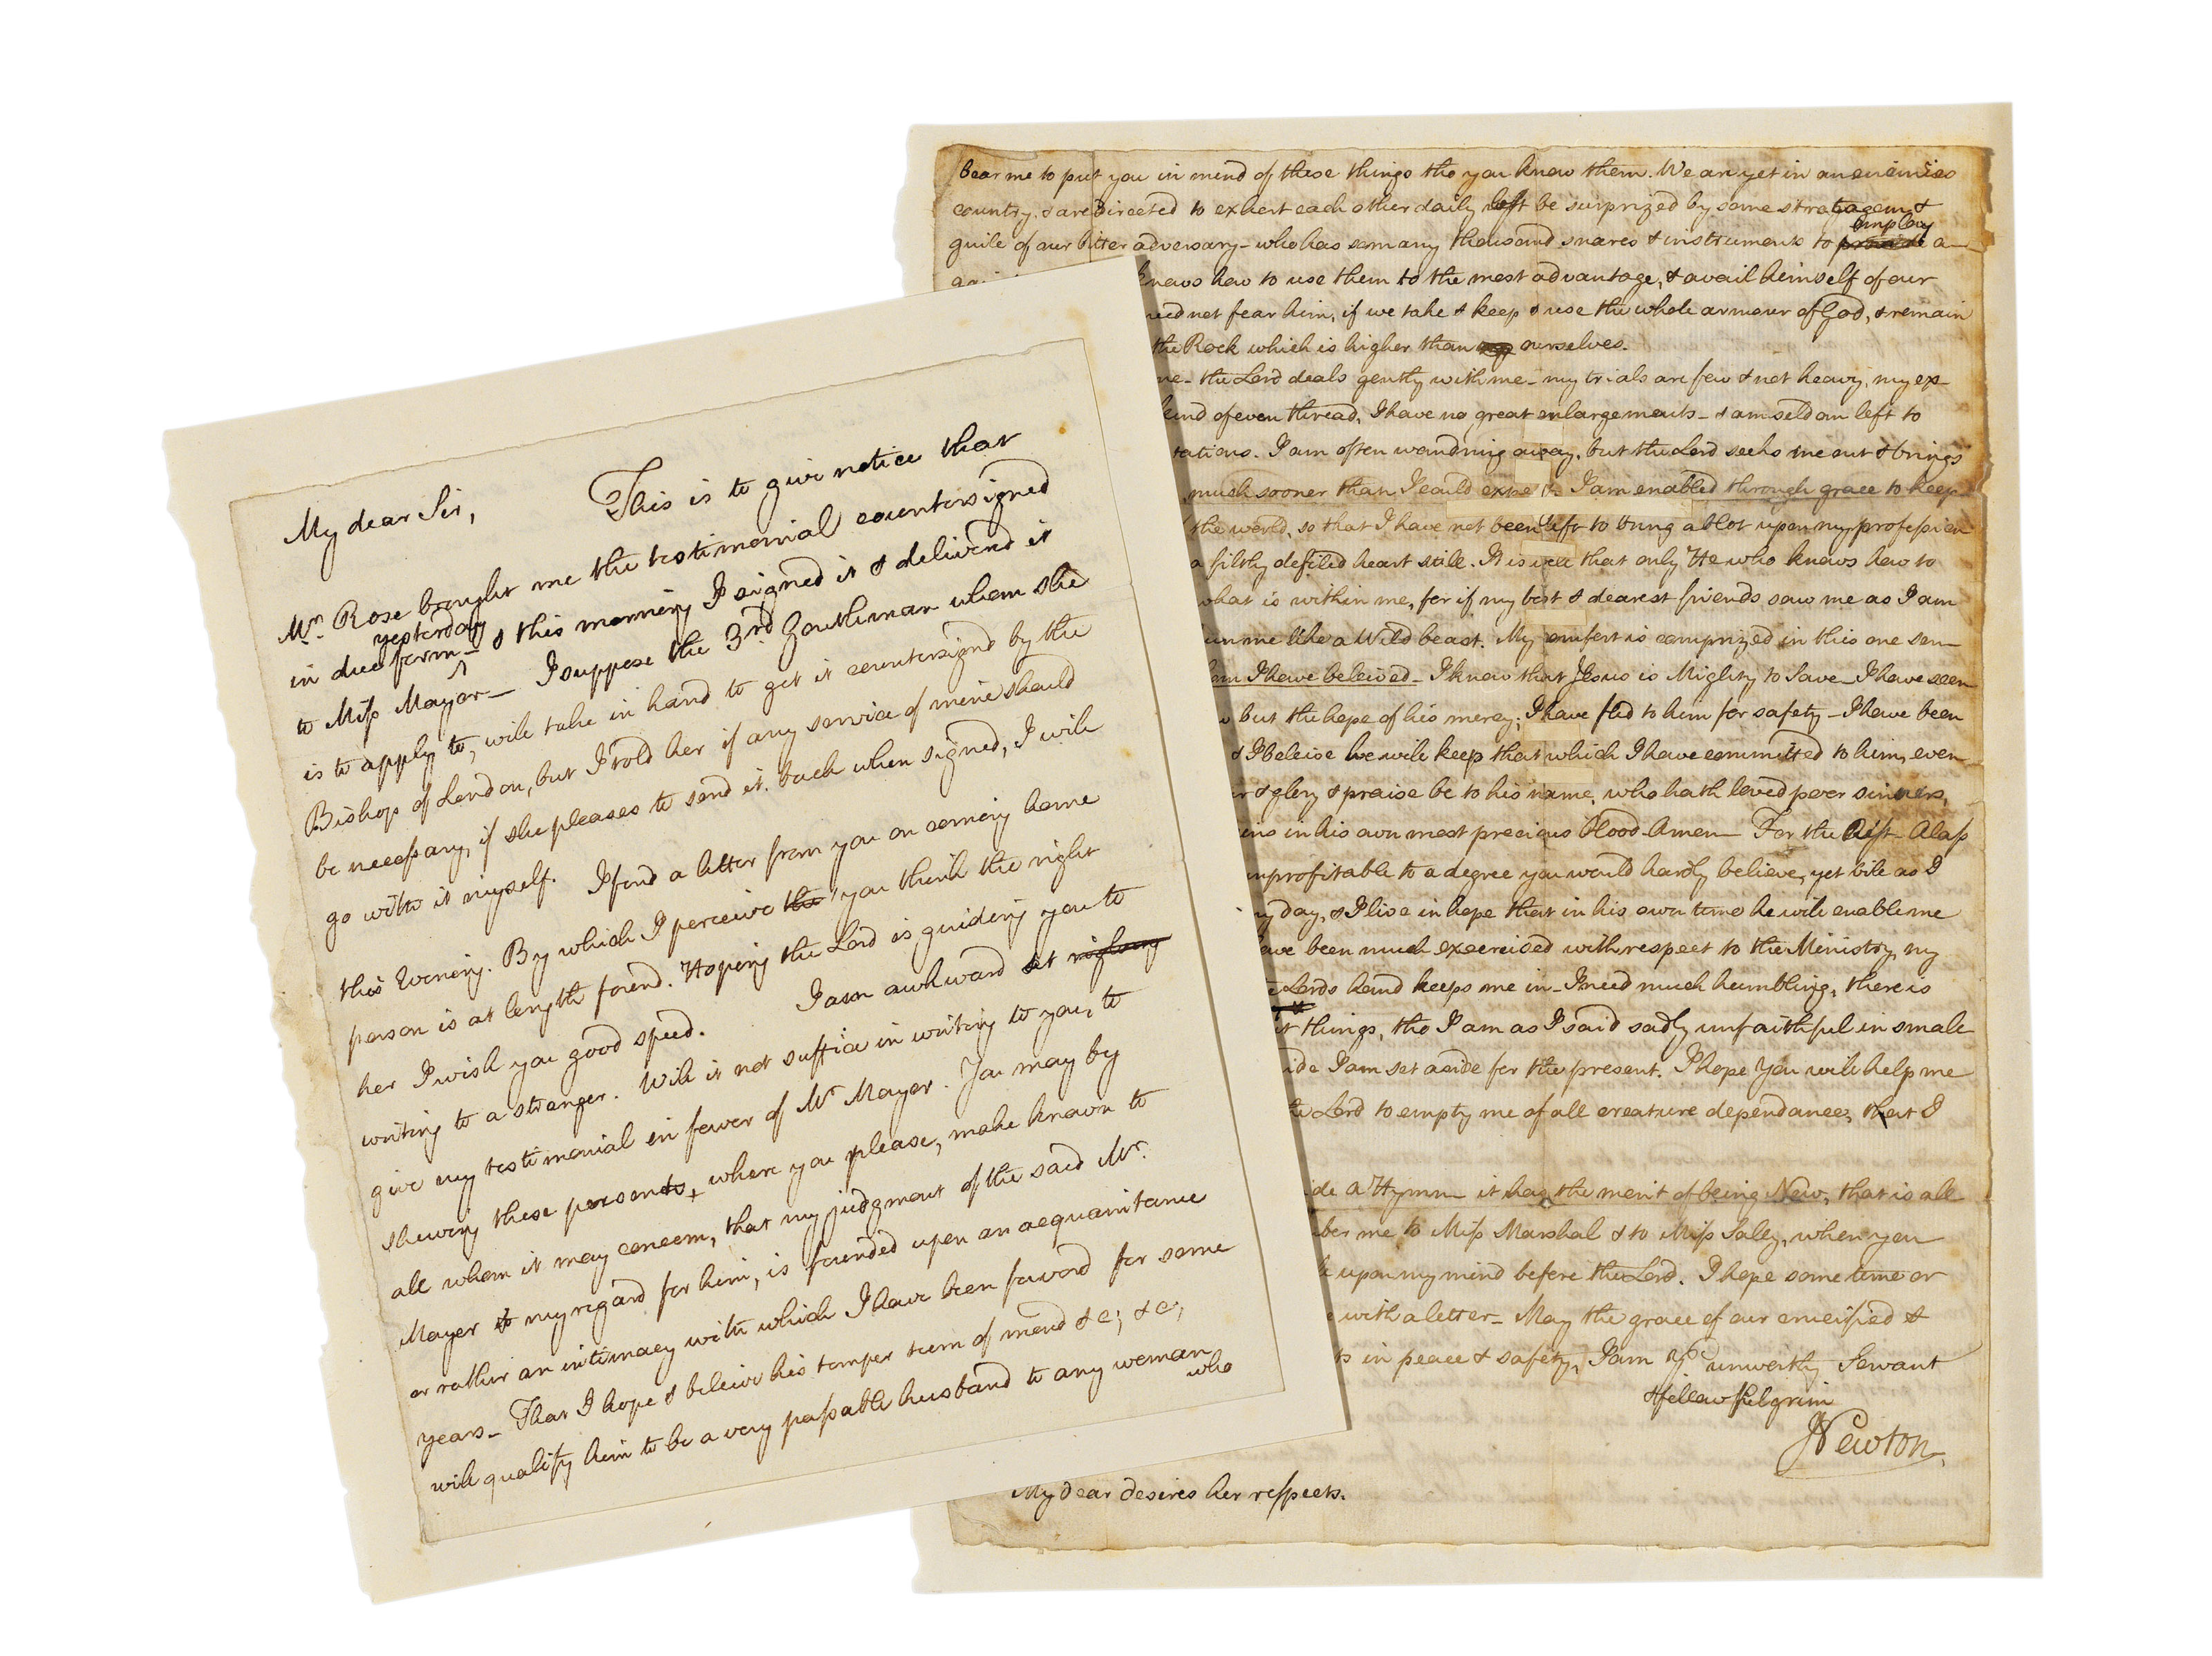 My dear Sir, This is to give notice that
Mrs. Rose brought me the testimonial countersigned
yesterday
in due form & this morning I signed it & deliverd it
to Miss Mayor — I suppose the 3rd Gentleman whom she
is to apply to, will take in hand to get it countersignd by the
Bishop of London, but I told her if any service of mine should
be necessary, if she pleases to send it back when signed, I will
go with it myself. I find a letter from you on coming home
this Evening. By which I perceive you think the right
person is at length found. Hoping the Lord is guiding you to
her I wish you good speed. I am awkward at
writing to a stranger. Will it not suffice in writing to you, to
give my testimonial in favor of Mr Mayor. You may by
shewing these presents, where you please, make known to
all whom it may concern, that my judgment of the said Mr.
Mayor & my regard for him, is founded upon an acquaintance
or rather an intimacy with which I have been favord for some
years — That I hope & beleive his temper turn of mind &c, &c,
will qualify him to be a very passable husband to any woman
who
bear me to put you in mind of these things tho you know them. We are yet in an enimies
country, & are directed to exhort each other daily lest be surprized by some stratagem &
employ
guile of our bitter adversary — who has so many thousand snares & instruments to a-
knows how to use them to the most advantage, & avail himself of our
need not fear him, if we take & keep & use the whole armour of God, & remain
the Rock which is higher than ourselves.
me — the Lord deals gently with me — my trials are few & not heavy, my ex-
kind of even thread, I have no great enlargements — & am seldom left to
tations. I am often wandring away, but the Lord seeks me out & brings
much sooner than I could expect. I am enabled through grace to keep
the world, so that I have not been left to bring a blot upon my profession
a filthy defiled heart still. It is well that only He who knows how to
what is within me, for if my best & dearest friends saw me as I am
un me like a Wild beast. My comfort is comprized in this one sen-
om I have beleived — I know that Jesus is Mighty to Save — I have seen
but the hope of his mercy; I have fled to him for safety — I have been
& I beleive he will keep that which I have committed to him, even
r & glory & praise be to his name, who hath loved poor sinners,
ins in his own most precious blood — Amen — For the Rest — Alass
unprofitable to a degree you would hardly believe, yet vile as I
ry day, & I live in hope that in his own time he will enable me
have been much exercised with respect to the Ministry, my
Lords hand keeps me in — I need much humbling, there is
things, tho I am as I said sadly unfaithful in small
ide I am set aside for the present. I hope You will help me
the Lord to empty me of all creature dependance, that I
ide a Hymn — it has the merit of being New, that is all
ber me to Miss Marshal & to Miss Salley, when you
upon my mind before the Lord. I hope some time or
with a letter — May the grace of our crucified &
ts in peace & safety, I am unworthy Servant
& fellow Pilgrim
JNewton
My dear desires her respects.